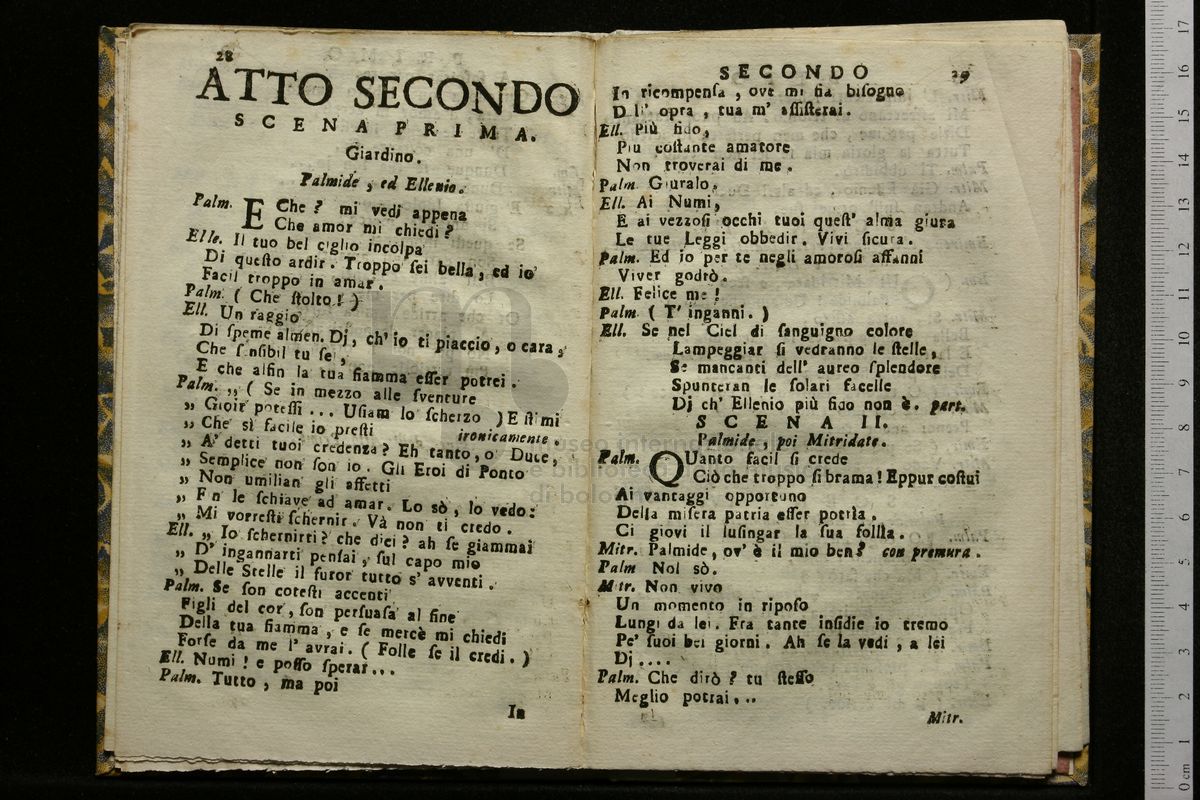 28
ATTO SECONDO
SCENA PRIMA.
Giardino.
Palmide, ed Ellenio.
Palm. E Che? mi vedi appena
Che amor mi chiedi?
Elle. Il tuo bel ciglio incolpa
Di questo ardir. Troppo sei bella, ed io
Facil troppo in amar.
Palm. (Che stolto!)
Ell. Un raggio
Di speme almen. Dj, ch'io ti piaccio, o cara,
Che s nsibil tu sei,
E che alfin la tua fiamma esser potrei.
Palm. ,, (Se in mezzo alle sventure
,, Gioir potessi... Usiam lo scherzo) E stimi
,, Che sì facile io presti ironicamente.
,, A' detti tuoi credenza? Eh tanto, o Duce,
,, Semplice non son io. Gli Eroi di Ponto
,, Non umilian gli affetti
,, Fn le schiave ad amar. Lo sò, lo vedo:
,, Mi vorresti schernir. Và non ti credo.
Ell. ,, Io schernirti? che dici? ah se giammai
,, D' ingannarti pensai, sul capo mio
,, Delle Stelle il furor tutto s' avventi.
Palm. Se son cotesti accenti
Figli del cor, son persuasa al fine
Della tua fiamma, e se mercè mi chiedi
Forse da me l' avrai. (Folle se il credi.)
Ell. Numi! e posso sperar...
Palm. Tutto, ma poi
In
SECONDO 29
In ricompensa, ove mi sia bisogno
D ll' opra, tua m' assisterai.
Ell. Più fido,
Piu costante amatore
Non troverai di me.
Palm. Giuralo.
Ell. Ai Numi,
E ai vezzosi occhi tuoi quest' alma giura
Le tue Leggi obbedir. Vivi sicura.
Palm. Ed io per te negli amorosi affanni
Viver godrò.
Ell. Felice me!
Palm. (T' inganni.)
Ell. Se nel Ciel di sanguigno colore
Lampeggiar si vedranno le stelle,
Se mancanti dell' aureo splendore
Spunteran le solari facelle
Dj ch' Ellenio più fido non è. part.
SCENA II.
Palmide, poi Mitridate.
Palm. QUanto facil si crede
Ciò che troppo si brama! Eppur costui
Ai vantaggi opportuno
Della misera patria esser potria.
Ci giovi il lusingar la sua follìa.
Mitr. Palmide, ov' è il mio ben? con premura.
Palm Nol sò.
M tr. Non vivo
Un momento in riposo
Lungi da lei. Fra tante insidie io tremo
Pe' suoi bei giorni. Ah se la vedi, a lei
Dj....
Palm. Che dirò? tu stesso
Meglio potrai...
Mitr.
museo interna
e biblioteca
di bolo